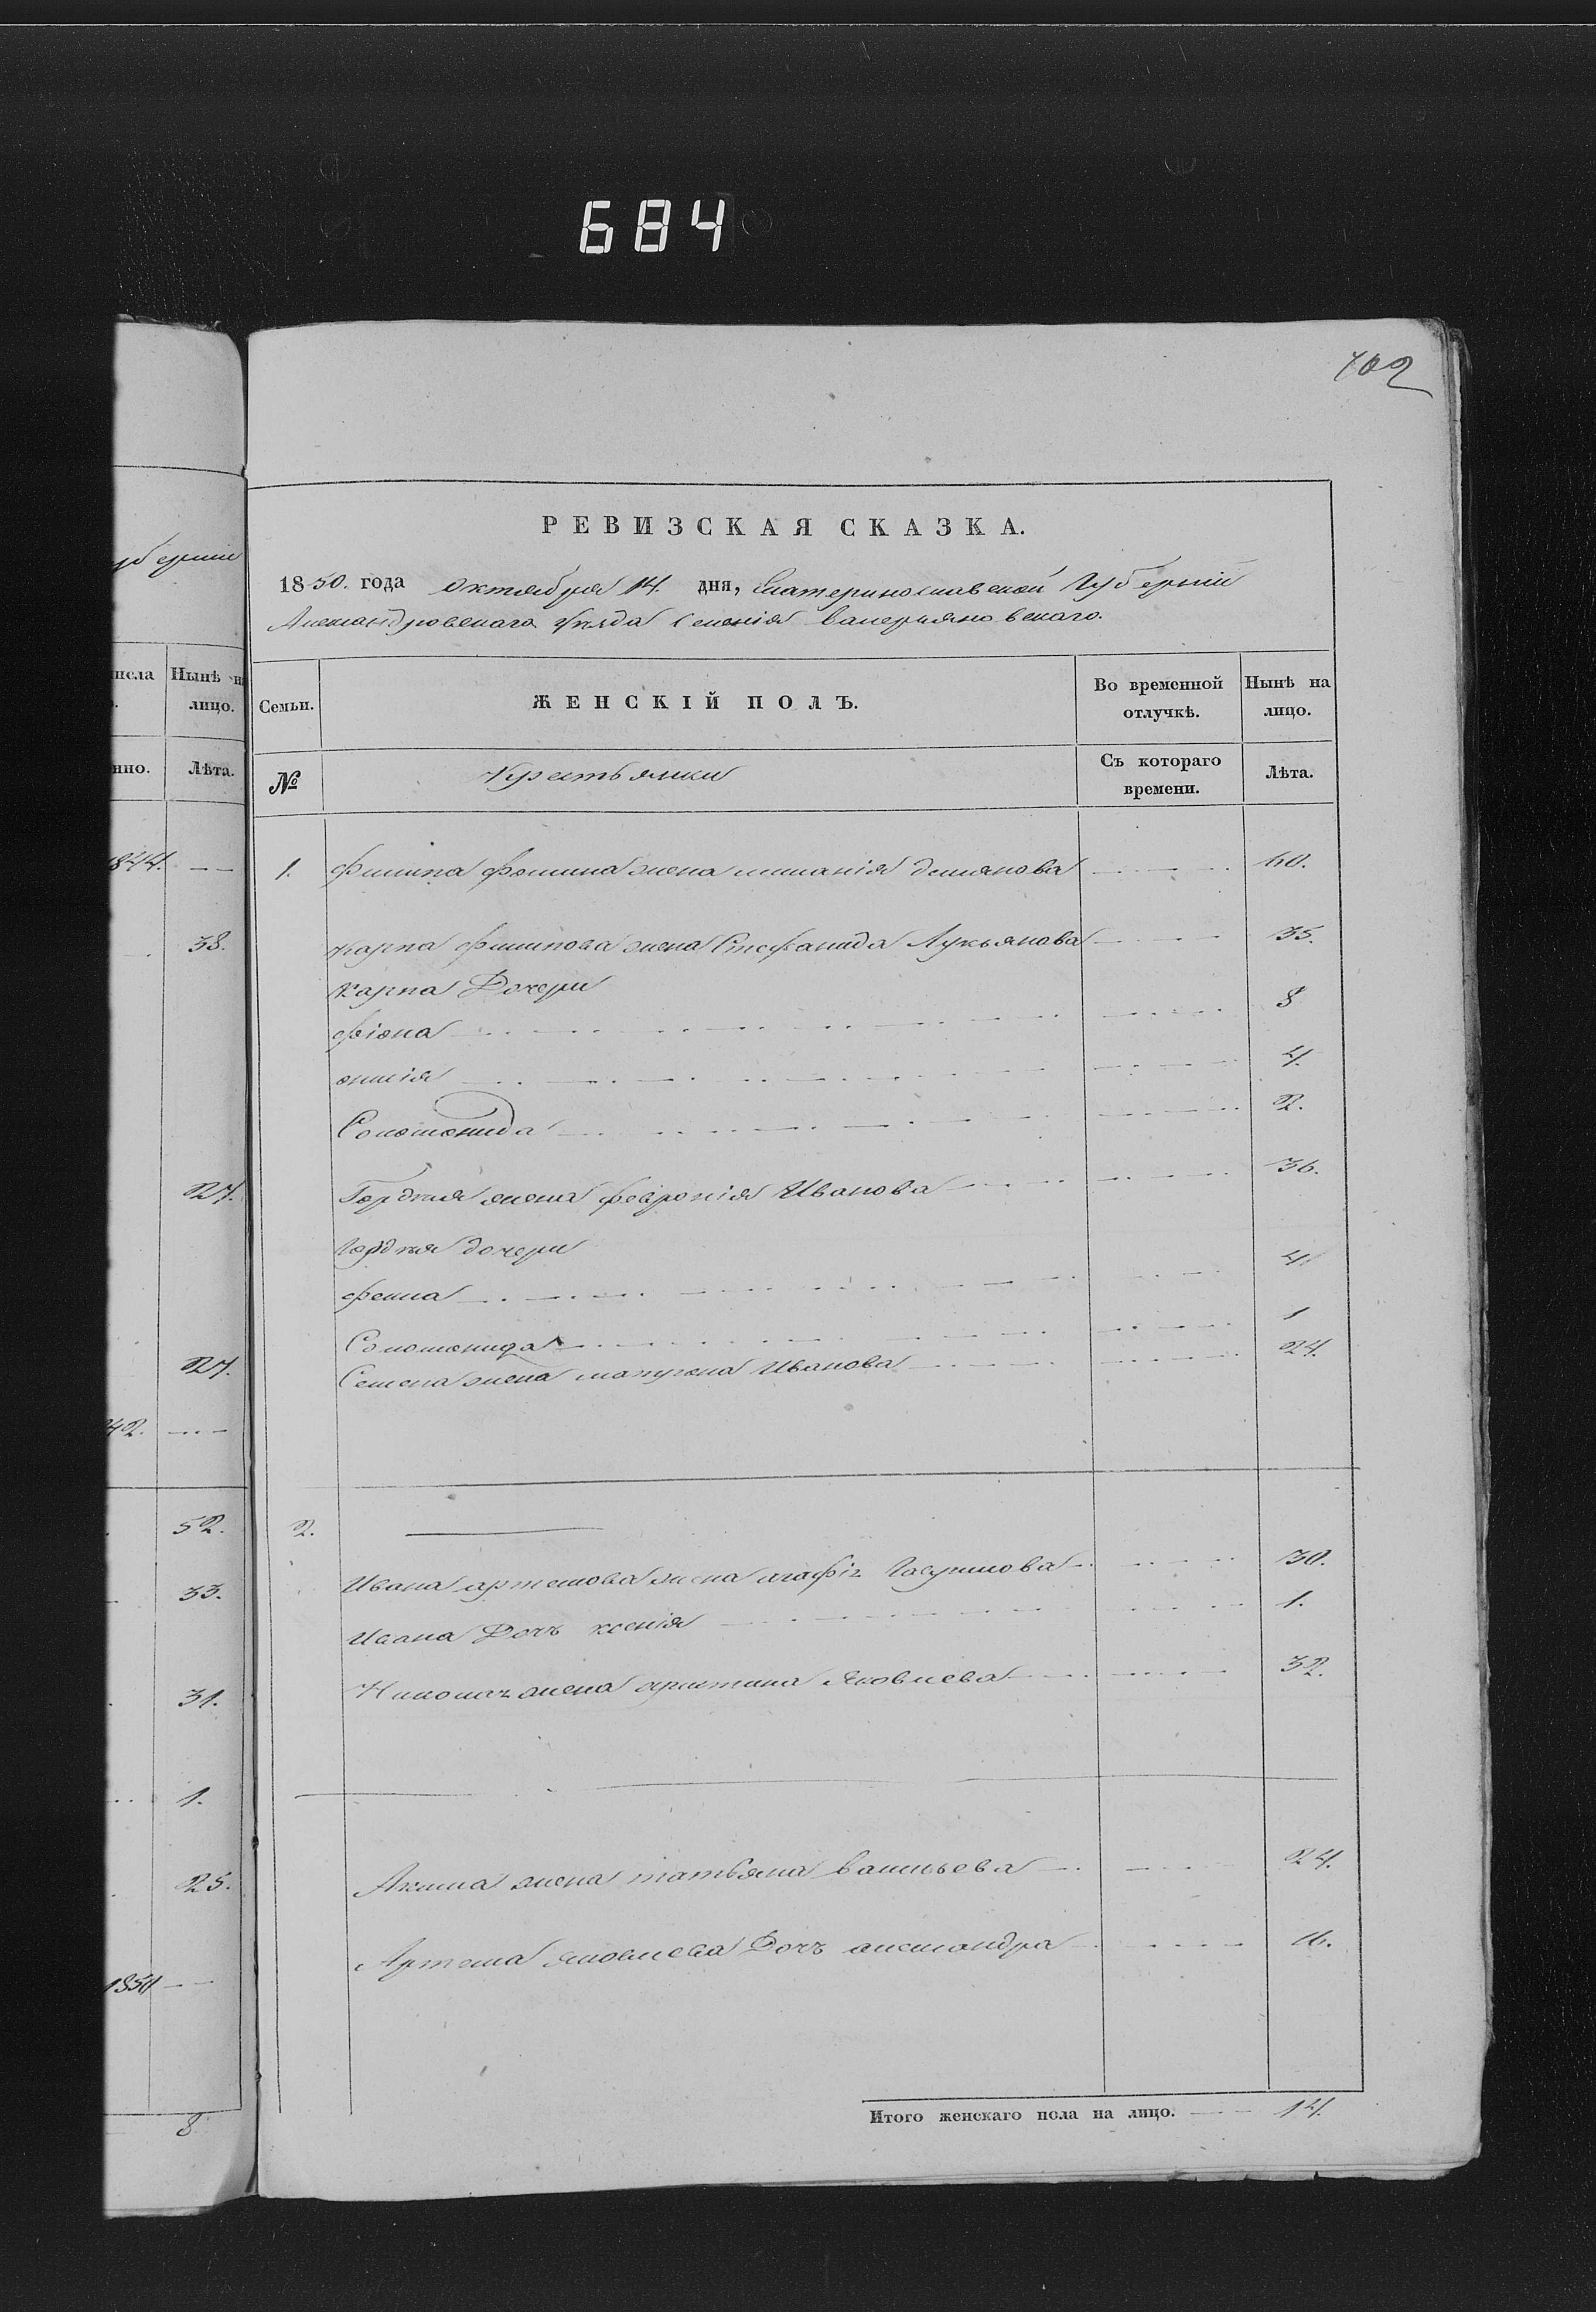 684
702
уберніи
РЕВИЗСКАЯ СКАЗКА.
1850. года октября 14. дня, Екатеринославской Губерніи
Александровскаго уѣзда Селенія валерьяновскаго.
числа
Нынѣ на лицо.
Семьи.
ЖЕНСКІЙ ПОЛЪ.
Во временной отлучкѣ.
Нынѣ на лицо.
нно.
Лѣта.
№
Крестьянки
Съ котораго времени.
Лѣта.
1844. — —
1. филипа фомина жена меланія демянова 60.
38.
карпа филипова жена Стефанида Лукьянова 35.
карпа Дочери
фіона 8
4.
Соломонида 2.
27.
Гордѣя жена февронія Иванова 36.
Гордѣя дочери
4
Соломонида 1
27.
Семена жена Иванова 24.
42.
52.
2.
33.
Ивана артемова жена агафія Гаврилова 30.
Ивана Дочь ксенія 1.
31.
жена христина Яковлева 32.
1.
25.
Акима жена татьяна васильева 24.
Артема яковлева Дочь александра
1850 — —
8
Итого женскаго пола на лицо. 14.